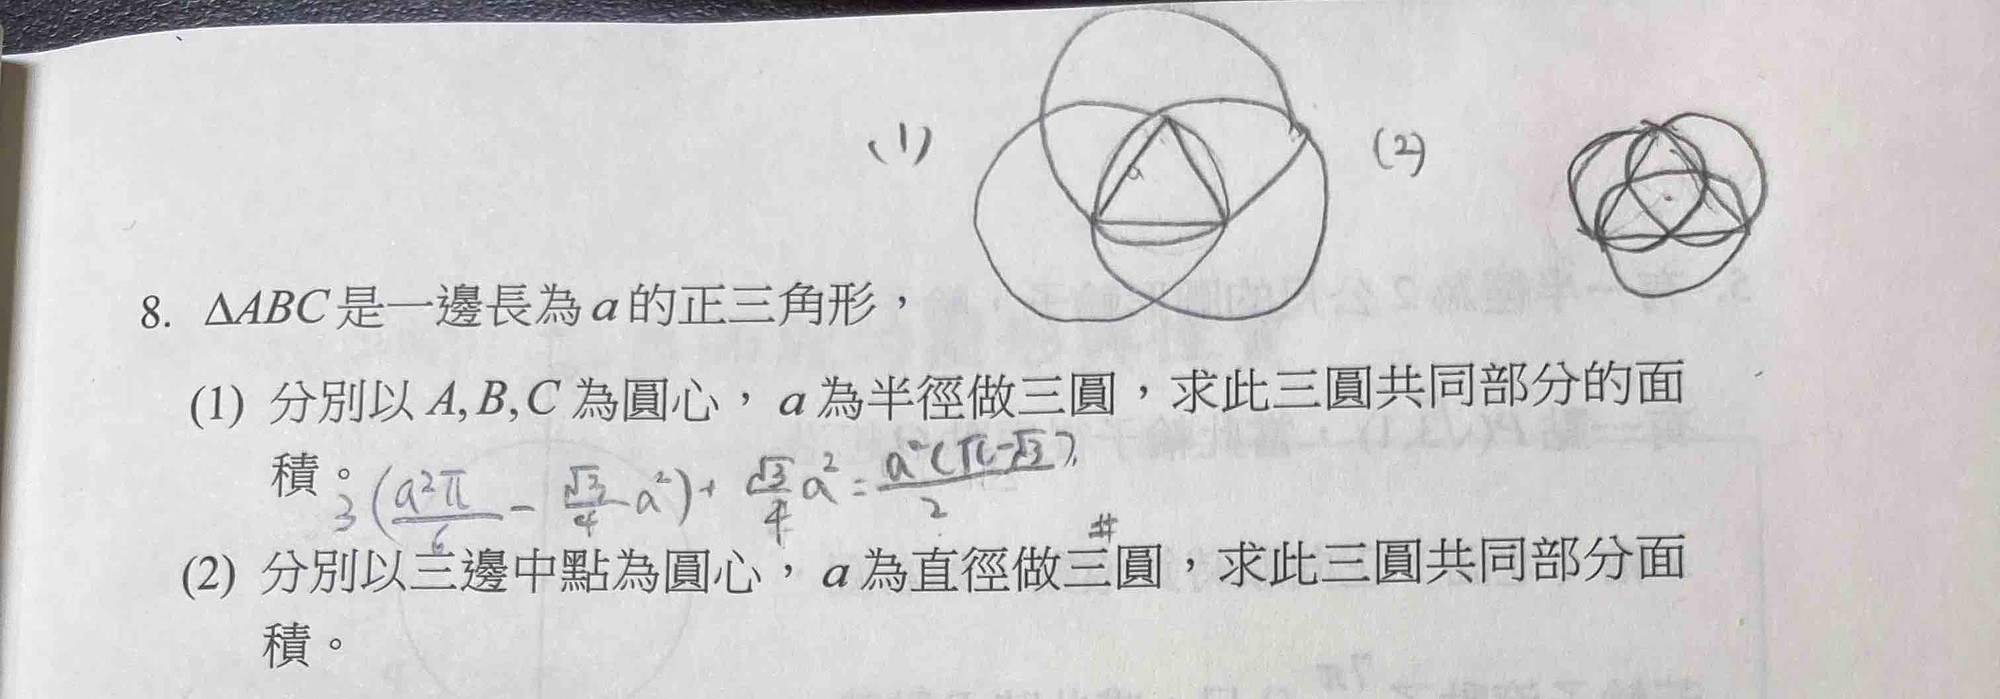 (1)
(2)
a
8. ΔABC是一邊長為a的正三角形，
(1) 分別以 A, B, C 為圓心，a為半徑做三圓，求此三圓共同部分的面
積。
3(a²π/6 - √3/4 a²) + √3/4 a² = a²(π-√3)/2 #
(2) 分別以三邊中點為圓心，a為直徑做三圓，求此三圓共同部分面
積。